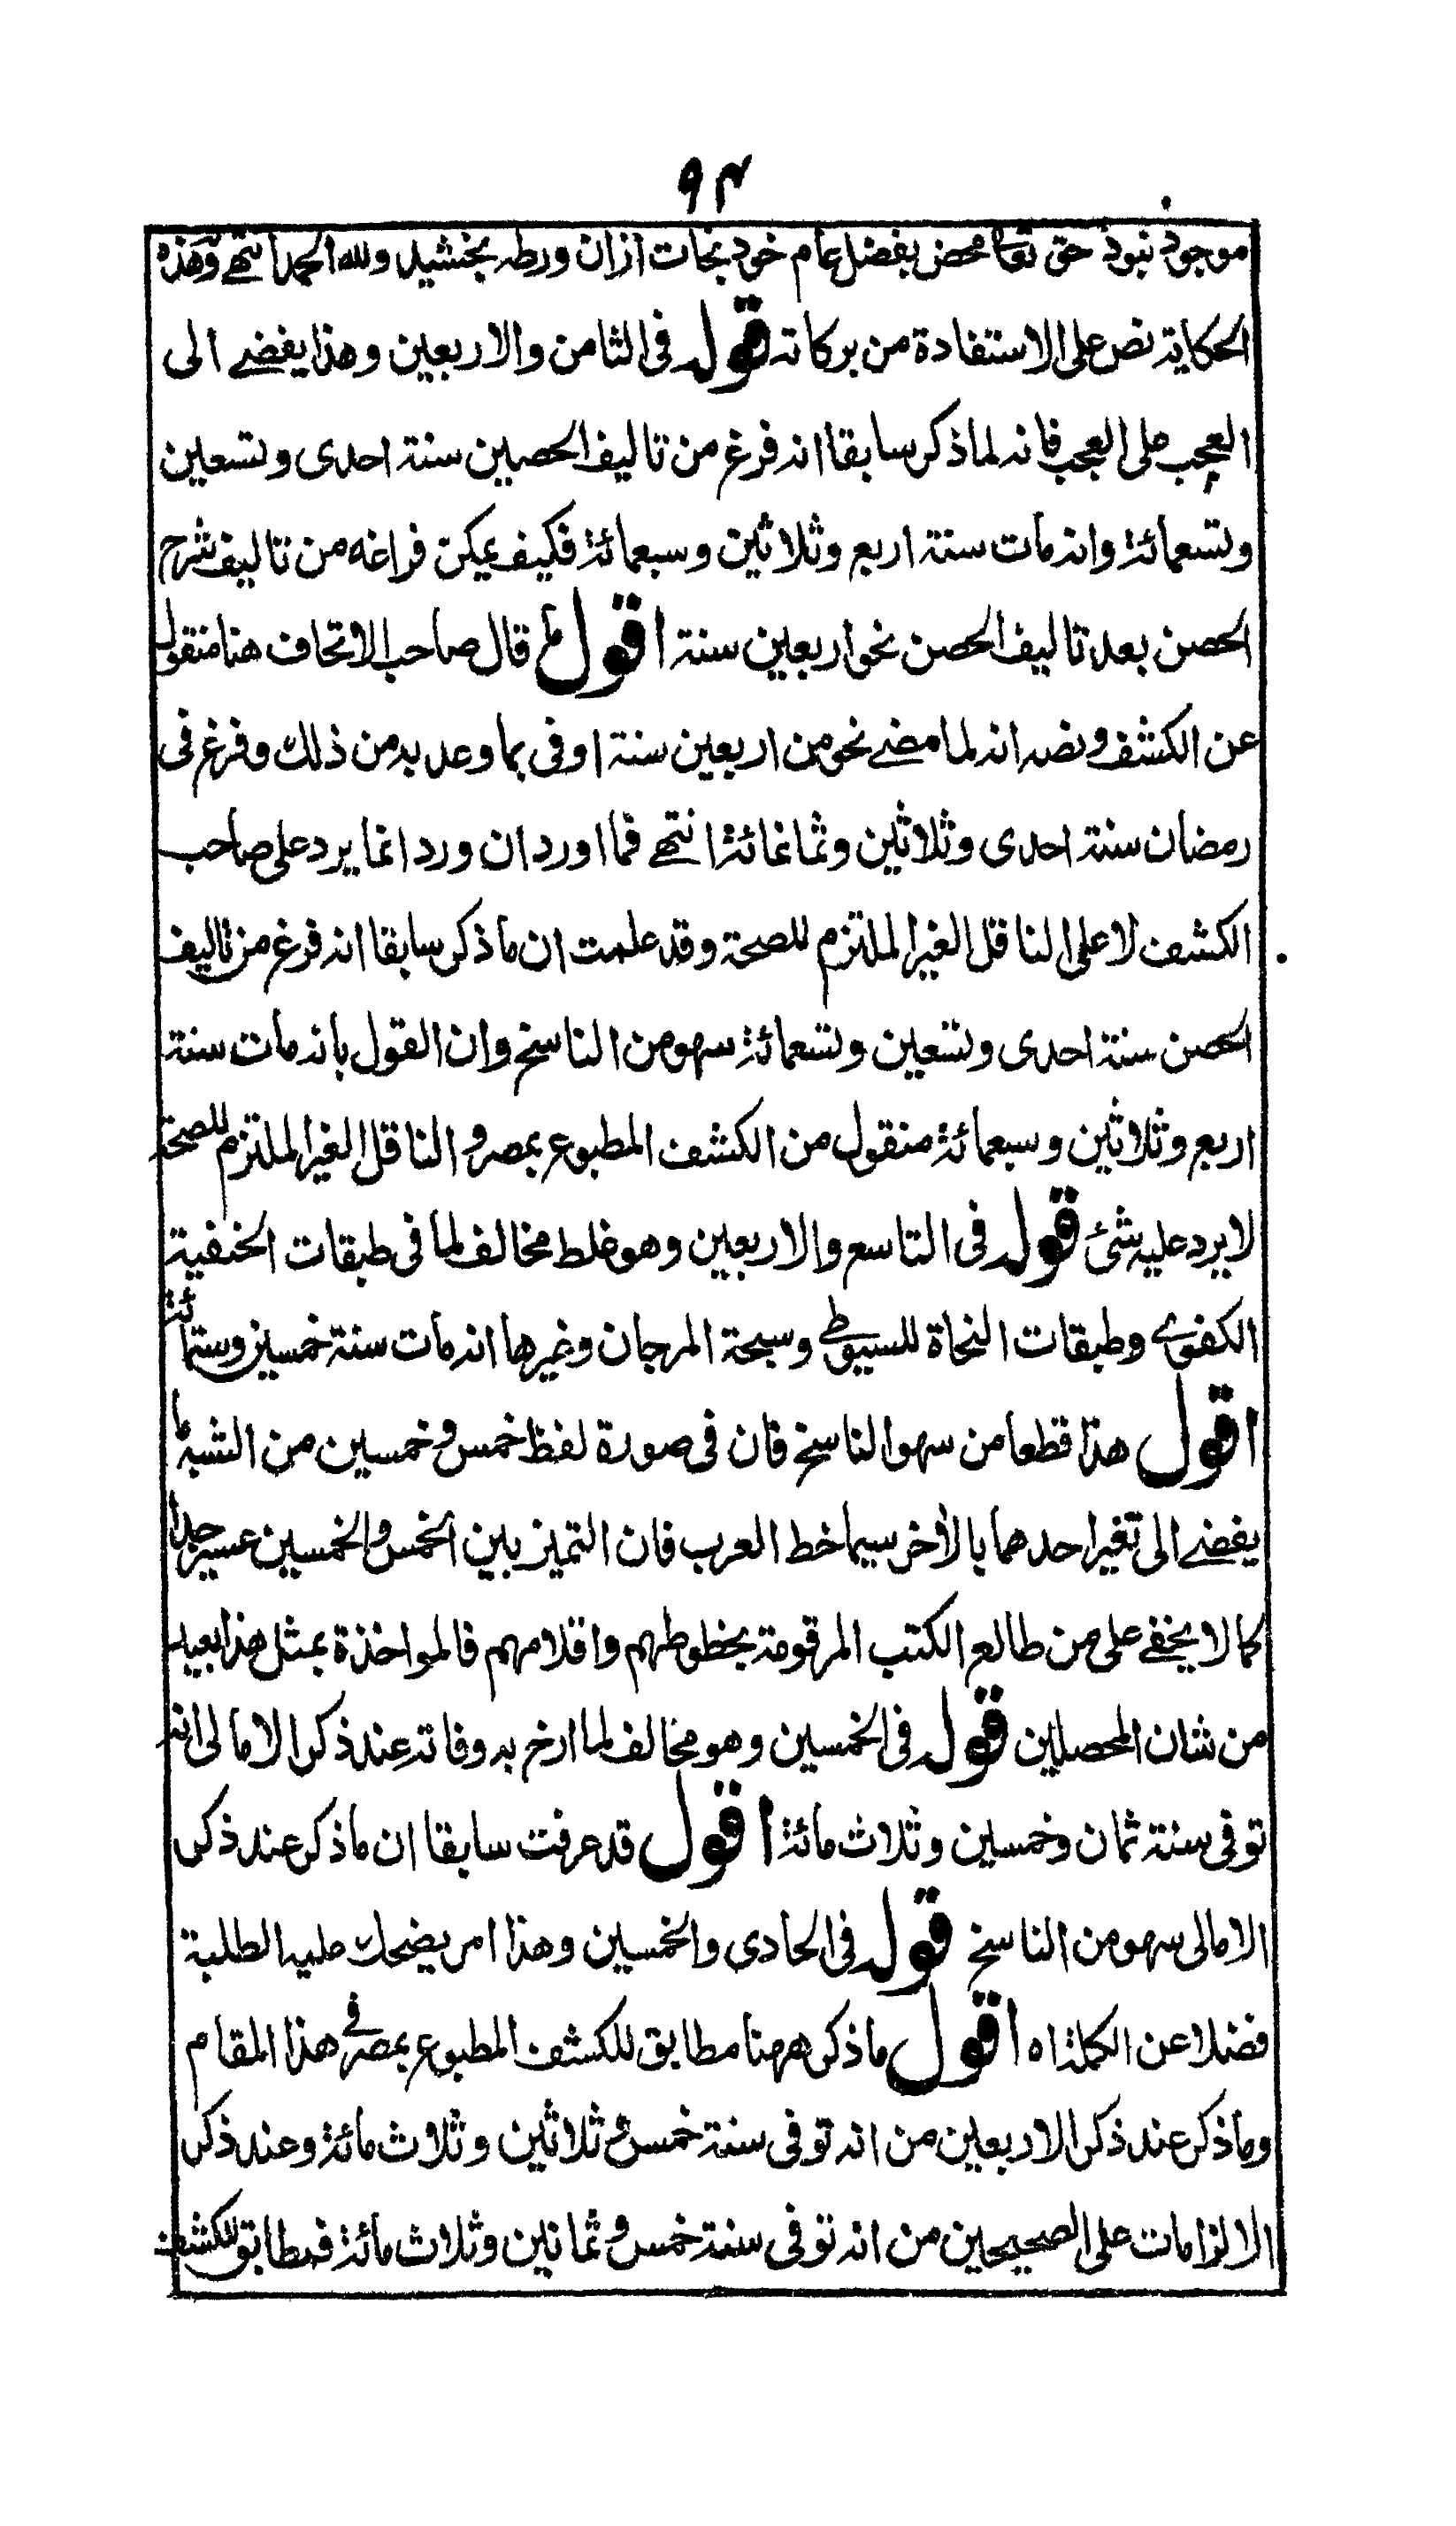 ۹۴
موجود نبود حق تعالى محض بفضل عام خود نجات ازان ورطه بخشيد ولله الحمد انتهى وهذه
الحكاية نص على الاستفادة من بركاته قوله فى الثامن والاربعين وهذا يفضے الى
العجب على العجب فانه لما ذكر سابقا انه فرغ من تاليف الحصين سنة احدى وتسعين
وتسعمائة وانه مات سنة اربع وثلاثين وسبعمائة فكيف يمكن فراغه من تاليف شرح
الحصن بعد تاليف الحصن نحو اربعين سنة اقول قال صاحب الاتحاف هنا منقول
عن الكشف ونصه انه لما مضے نحو من اربعين سنة اوفى بما وعد به من ذلك وفرغ فى
رمضان سنة احدى وثلاثين وثمانمائة انتهے فما اورد ان ورد انما يرد على صاحب
الكشف لا على الناقل الغير الملتزم للصحة وقد علمت ان ما ذكر سابقا انه فرغ من تاليف
الحصن سنة احدى وتسعين وتسعمائة سهو من الناسخ وان القول بانه مات سنة
اربع وثلاثين وسبعمائة منقول من الكشف المطبوع بمصر و الناقل الغير الملتزم للصحة
لا يرد عليه شئ قوله فى التاسع والاربعين وهو غلط مخالف لما فى طبقات الحنفية
الكفوے وطبقات النحاة للسيوطے وسبحة المرجان وغيرها انه مات سنة خمسين وستمائة
اقول هذا قطعا من سهو الناسخ فان فى صورة لفظ خمس و خمسين من الشبه ما
يفضے الى تغير احدهما بالأخر سيما خط العرب فان التميز بين الخمس والخمسين عسير جدا
كما لا يخفے على من طالع الكتب المرقومة بخطوطهم واقلامهم فالمواخذة بمثل هذا بعيد
من شان المحصلين قوله فى الخمسين وهو مخالف لما ارخ به وفاته عند ذكر الامالى انه
توفى سنة ثمان وخمسين وثلاث مائة اقول قد عرفت سابقا ان ما ذكر عند ذكر
الامالى سهو من الناسخ قوله فى الحادى والخمسين وهذا امر يضحك عليه الطلبة
فضلا عن الكملة اه اقول ما ذكر ههنا مطابق للكشف المطبوع بمصر فے هذا المقام
وما ذكر عند ذكر الاربعين من انه توفى سنة خمس و ثلاثين وثلاث مائة وعند ذكر
الالزامات على الصحيحين من انه توفى سنة خمس و ثمانين وثلاث مائة فمطابق للكشف